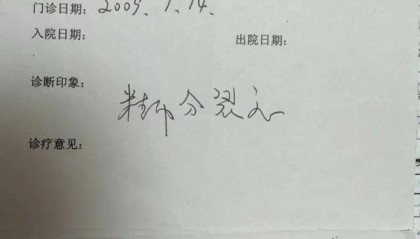 门诊日期: 2009.1.14.
入院日期: 出院日期:
诊断印象:
精神分裂症
诊疗意见: